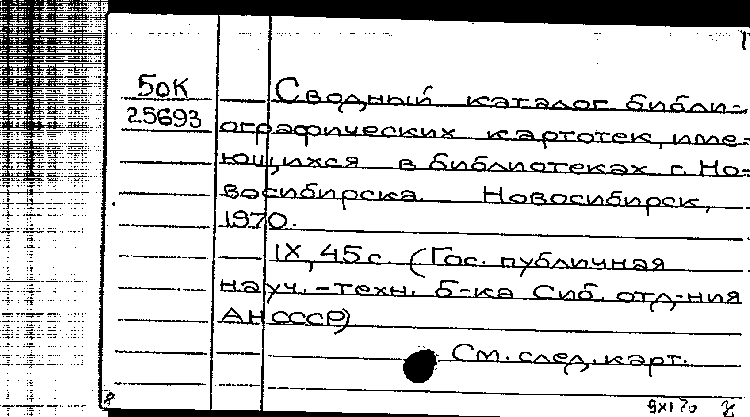 БоК
25693
Сводный каталог библи-
ографических картотек, име-
ющихся в библиотеках г. Но-
восибирска. Новосибирск,
1970.
IX, 45 с. (Гос. публичная
науч.-техн. б-ка Сиб. отд-ния
АН СССР)
См. след. карт.